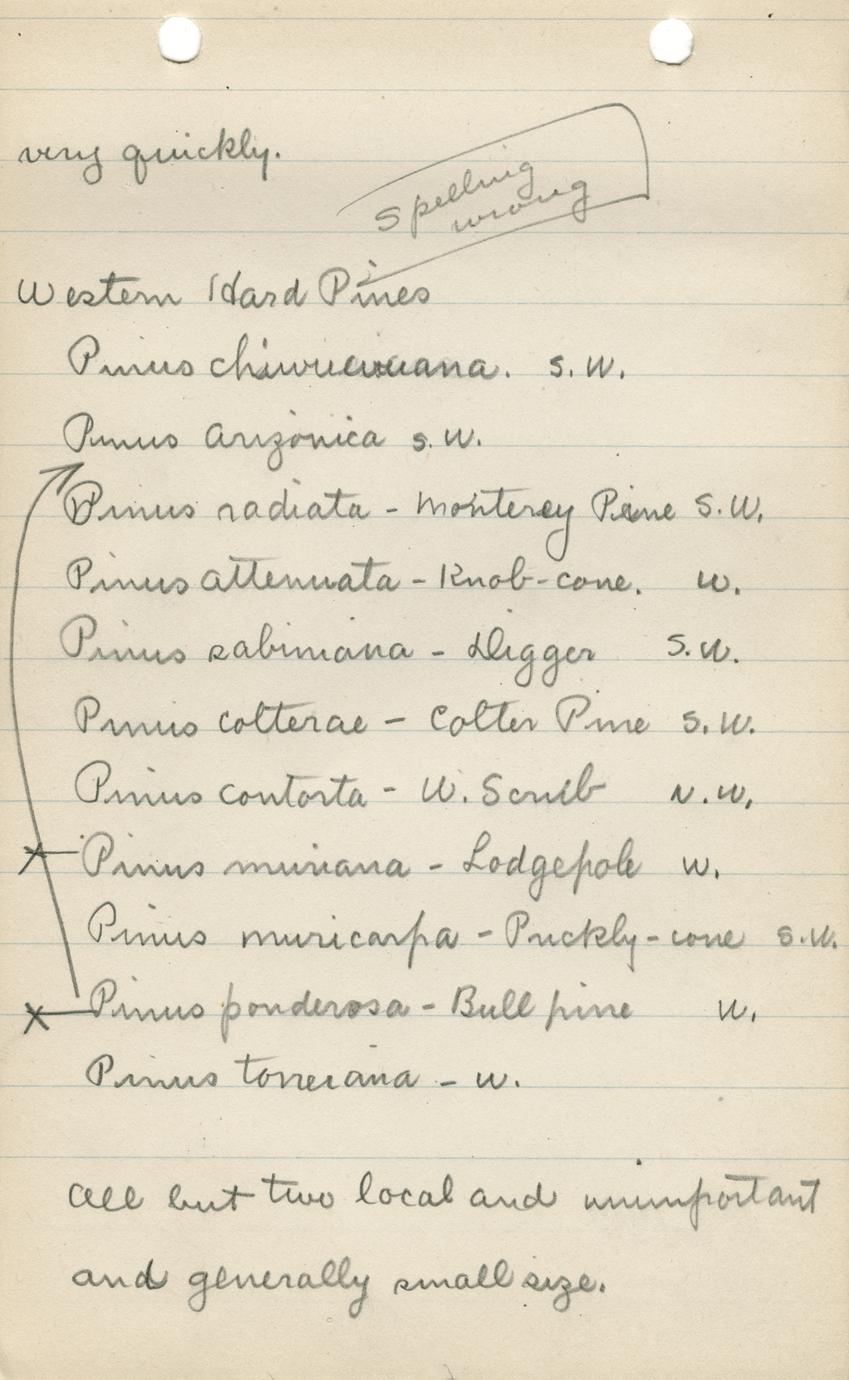 very quickly.
Spelling
wrong
Western Hard Pines
Pinus S. W.
Pinus arizonica S. W.
Pinus radiata - Monterey Pine S. W.
Pinus attenuata - Knob-cone. W.
Pinus sabiniana - Digger S. W.
Pinus colterae - Colter Pine S. W.
Pinus contorta - W. Scrub N. W.
Pinus - Lodgepole W.
Pinus muricarpa - Prickly-cone S. W.
Pinus ponderosa - Bull pine W.
Pinus torreiana - W.
All but two local and unimportant
and generally small size.